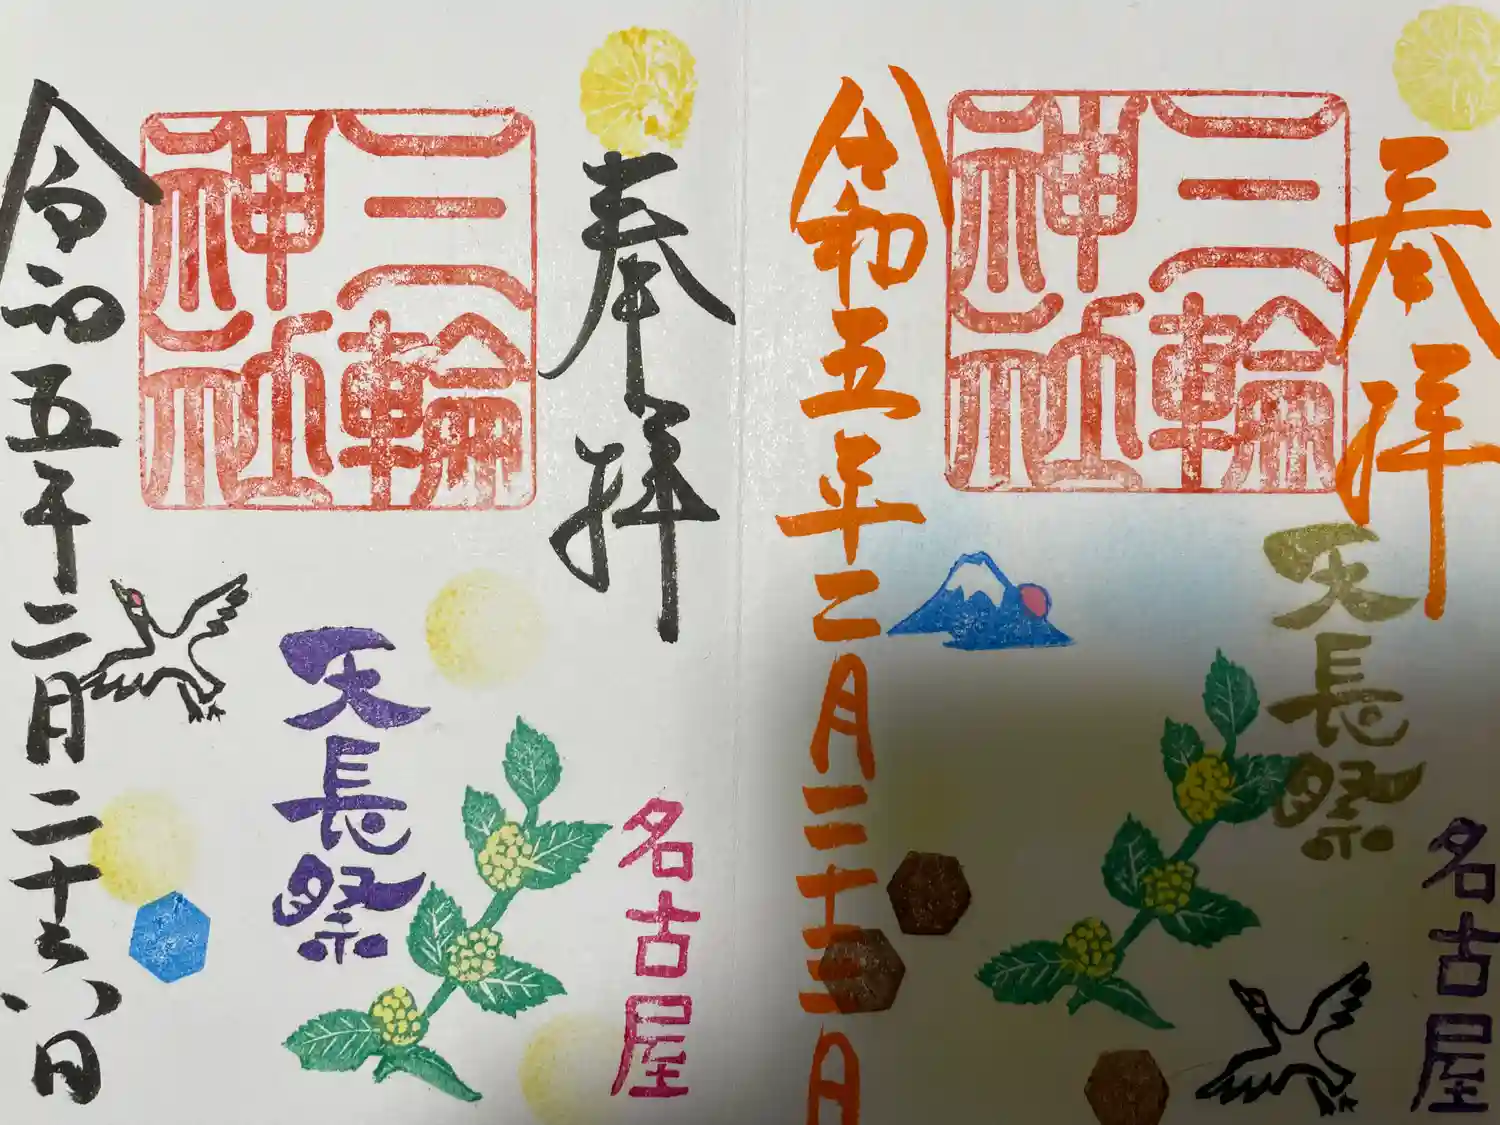 奉拝
三輪
神社
天長祭
名古屋
令和五年二月二十六日
奉拝
三輪
神社
天長祭
名古屋
令和五年二月二十三日